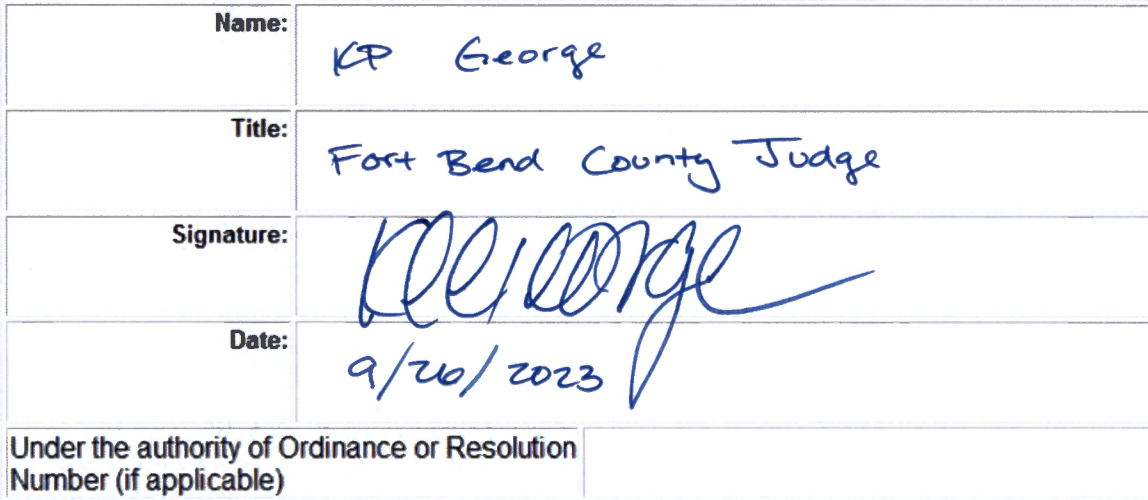 Name: KP George
Title: Fort Bend County Judge
Signature: KPGeorge
Date: 9/26/2023
Under the authority of Ordinance or Resolution
Number (if applicable)